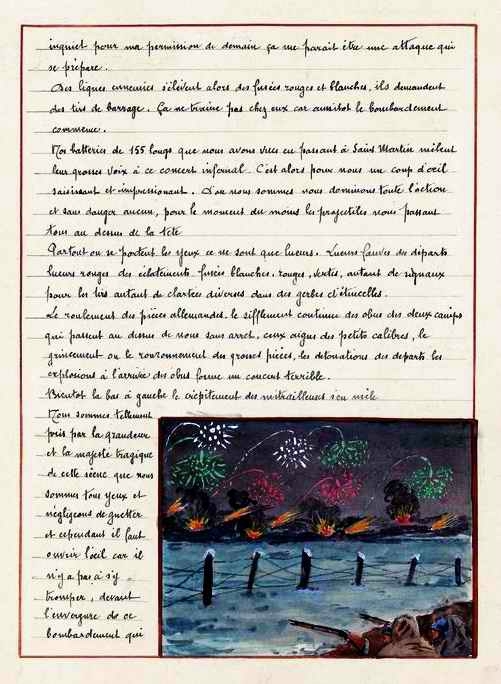 inquiet pour ma permission de demain ça me parait être une attaque qui
se prépare.
Des lignes ennemies s'élèvent alors des fusées rouges et blanches, ils demandent
des tirs de barrage. Ça ne traine pas chez eux car aussitot le bombardement
commence.
Nos batteries de 155 longs que nous avons vues en passant à Saint Martin mêlent
leur grosses voix à ce concert infernal. C'est alors pour nous un coup d'œil
saisissant et impressionant. D'ou nous sommes nous dominons toute l'action
et sans danger aucun, pour le moment du moins les projectiles nous passant
tous au dessus de la tête
Partout ou se portent les yeux ce ne sont que lueurs. Lueurs fauves des départs
lueurs rouges des éclatements fusées blanches, rouges, vertes, autant de signaux
pour les tirs autant de clartées diverses dans des gerbes d'étincelles.
Le roulement des pièces allemandes, le sifflement continue des obus des deux camps
qui passent au dessus de nous sans arret, ceux aigus des petits calibres, le
grincement ou le ronronnement des grosses pièces, les detonations des departs les
explosions à l'arrivée des obus forme un concert terrible.
Bientot la bas à gauche le crépitement des mitrailleuses s'en mêle
Nous sommes tellement
pris par la grandeur
et la majesté tragique
de cette scène que nous
sommes tous yeux et
négligeons de guetter
et cependant il faut
ouvrir l'œil car il
n'y a pas à s'y
tromper, devant
l'envergure de ce
bombardement qui